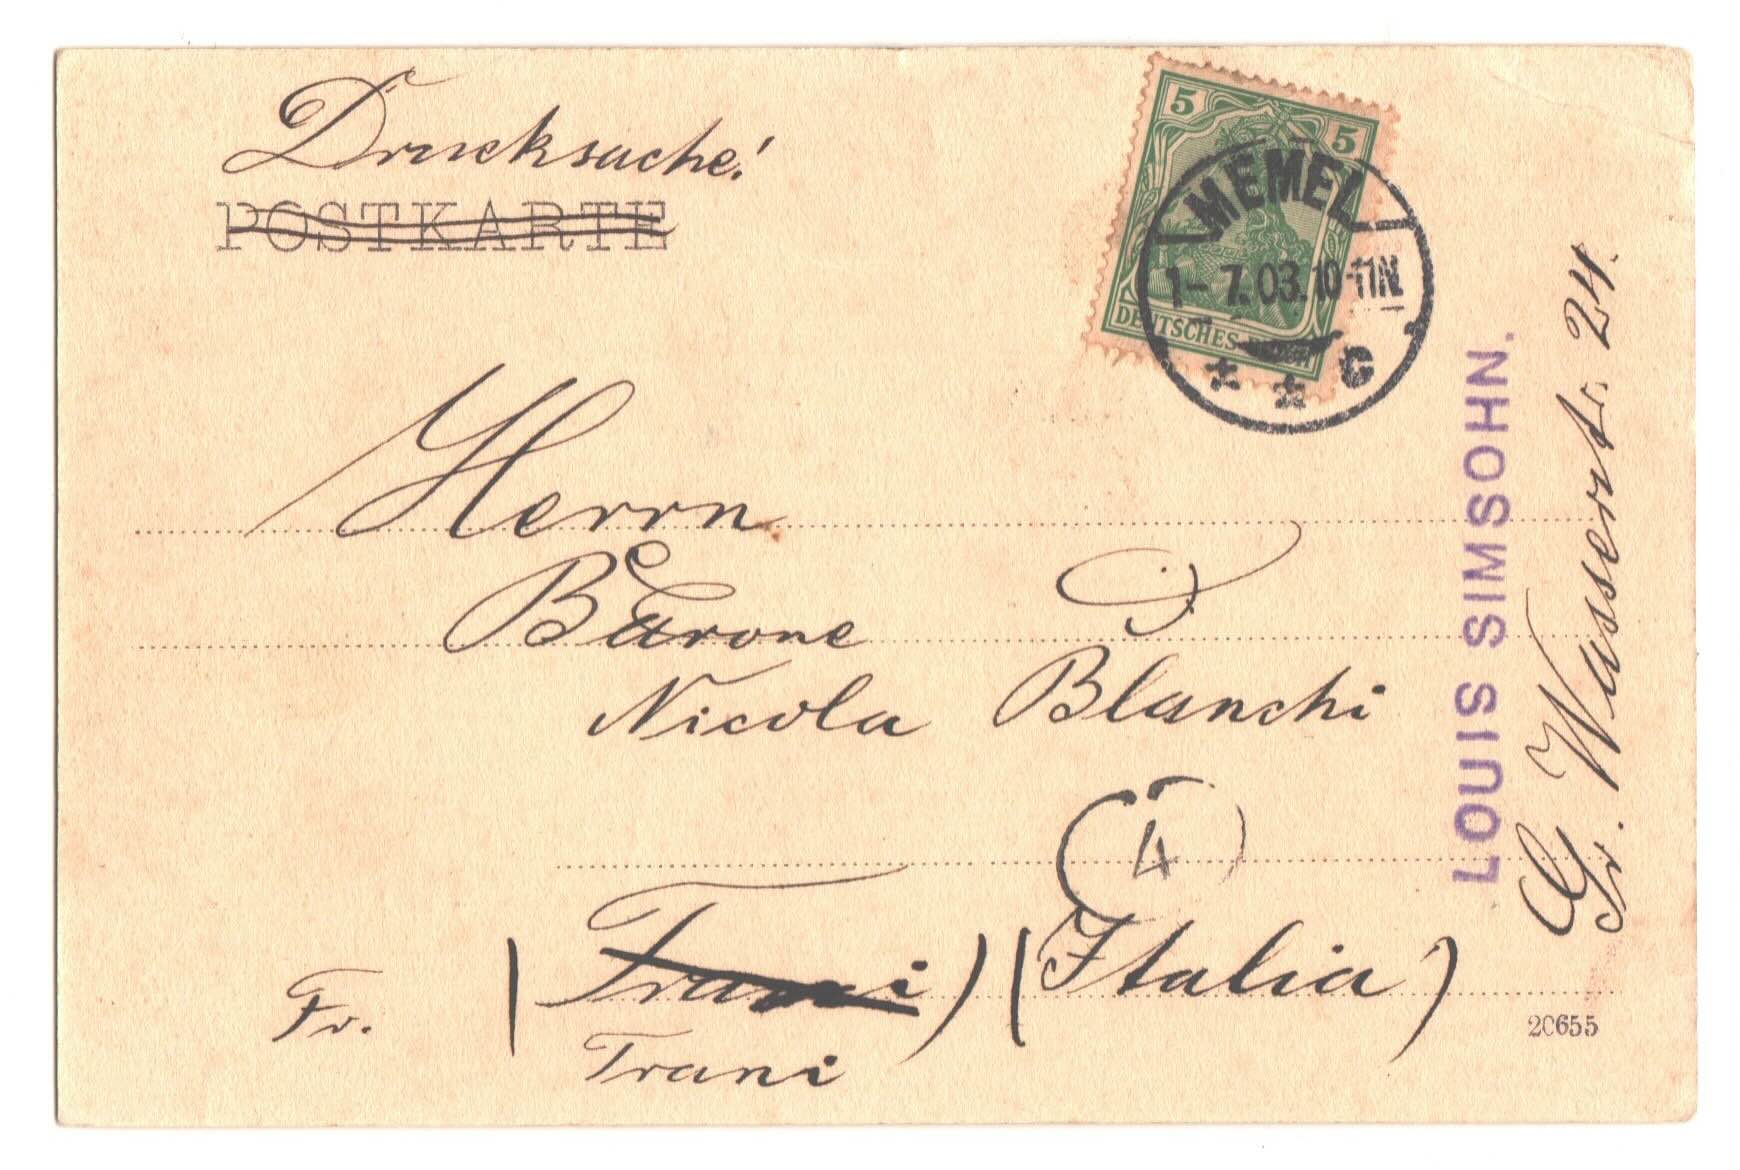 Drucksache!
POSTKARTE
5 5
DEUTSCHES REICH
MEMEL
1-7.03.10-11N.
* * C
Herrn
Barone
Nicola Blanchi
4
Fr. (Trani) (Italia)
Trani
LOUIS SIMSOHN.
Gr. Wasserstr. 24.
20655